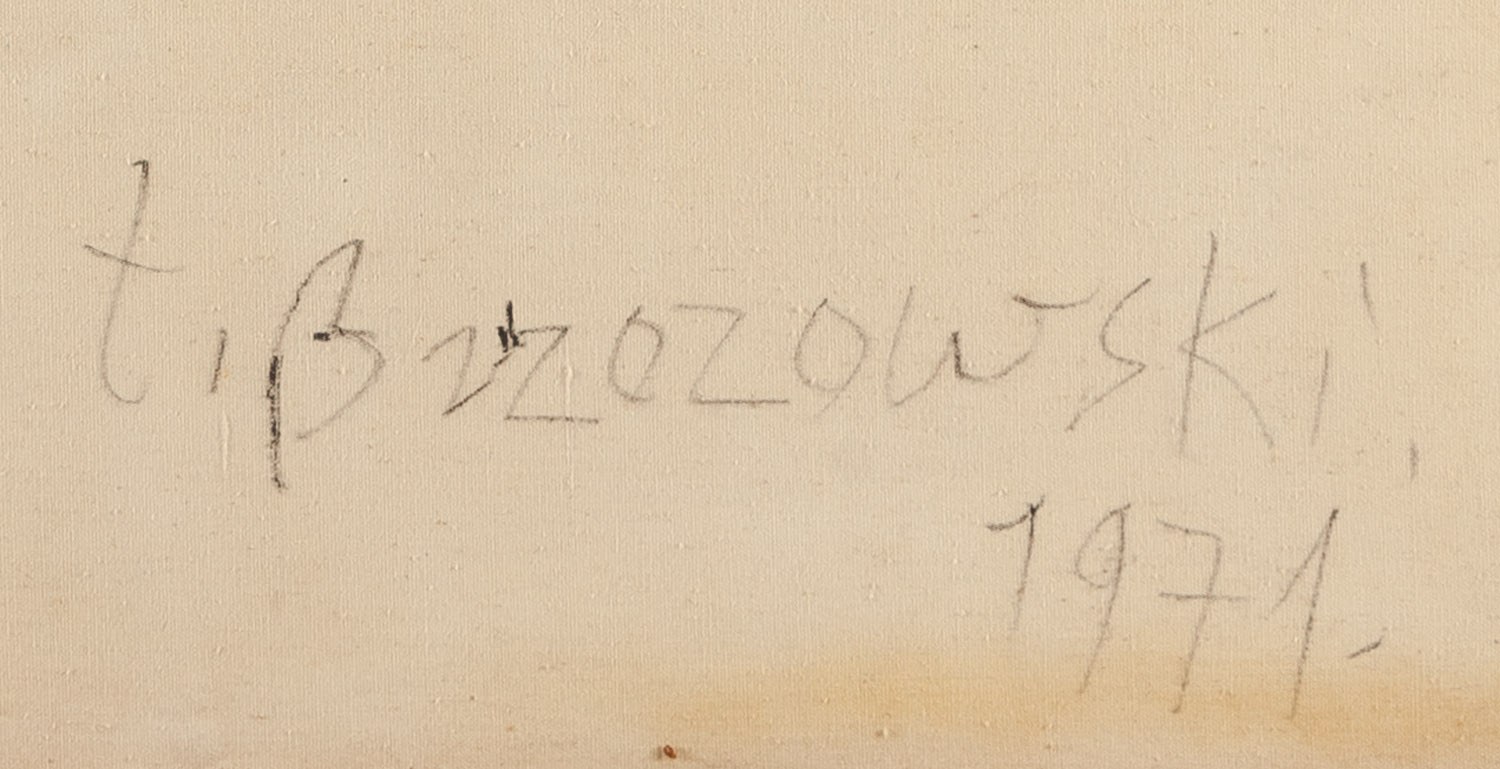 t. Brzozowski,
1971.